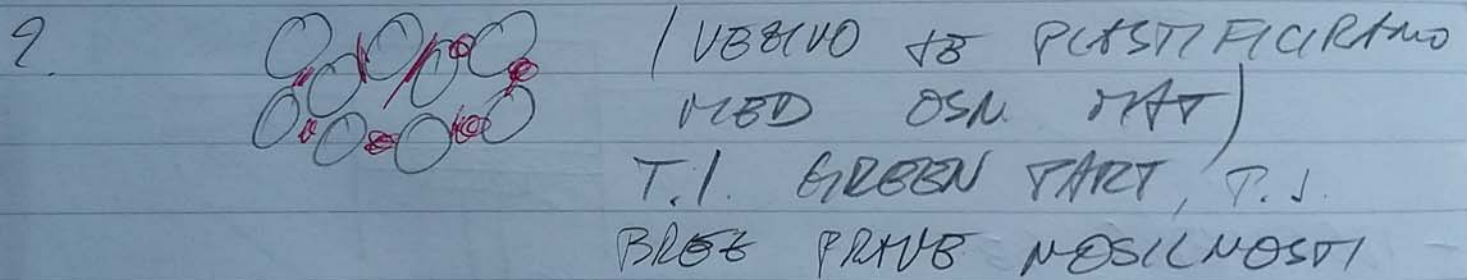 2.
(VEZIVO JE PLASTIFICIRANO
MED OSN. MAT)
T.I. GREEN PART, T.J.
BREZ PRAVE NOSILNOSTI